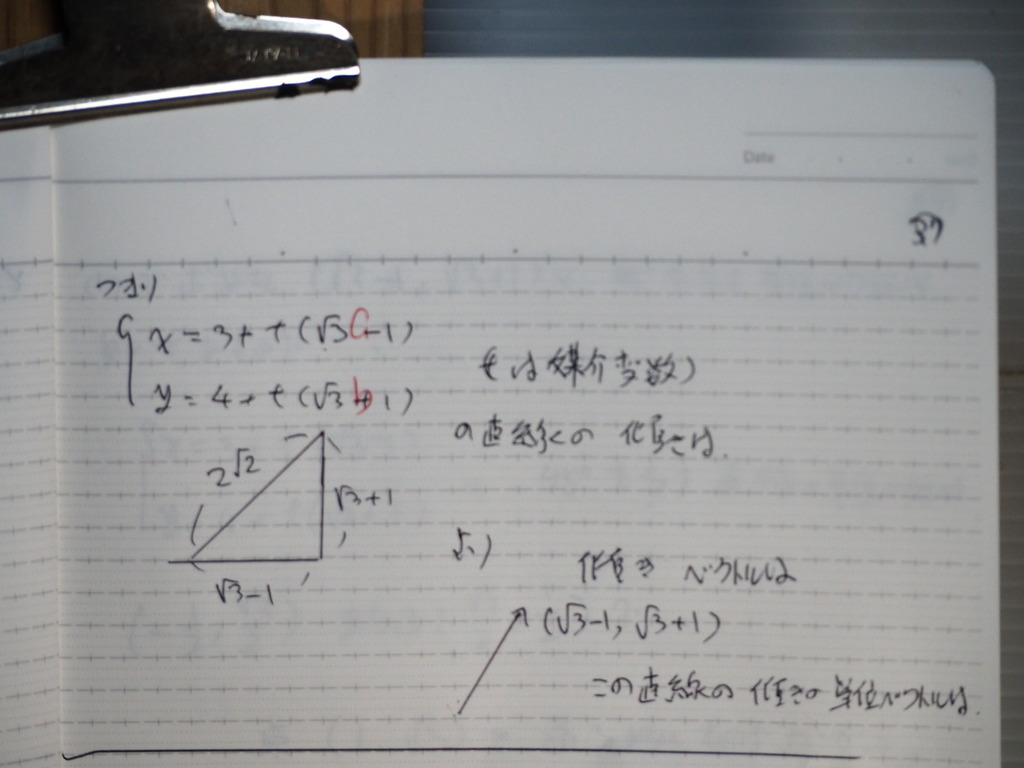 Date
37
つまり
x = 3 + t (√3 - 1)
y = 4 + t (√3 + 1)
(tは媒介変数)
の直線の 傾きは.
2√2
√3+1
√3-1
より
傾き ベクトルは
(√3-1, √3+1)
この直線の 傾きの 単位ベクトルは.